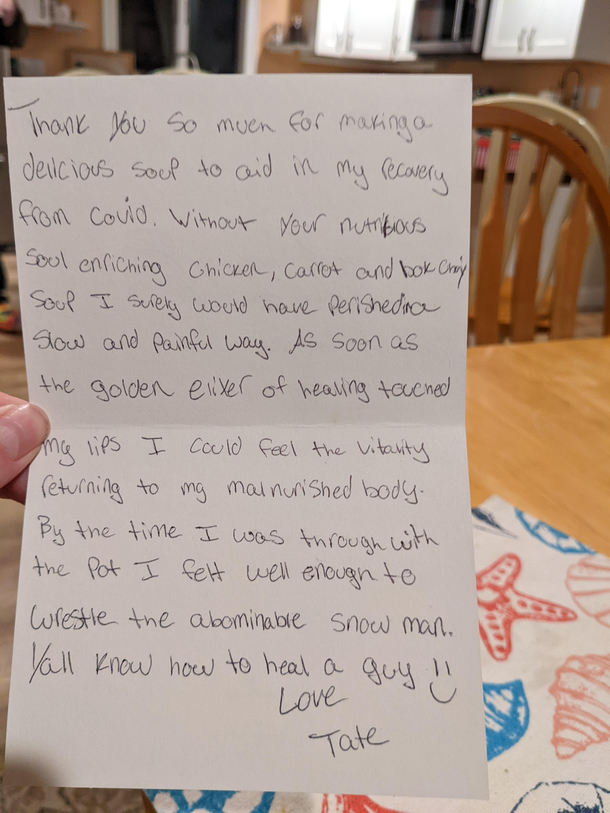 Thank you so much for making a
delicious soup to aid in my recovery
from covid. Without your nutritious
soul enriching chicken, carrot and bok choy
soup I surely would have perished in a
slow and painful way. As soon as
the golden elixer of healing touched
my lips I could feel the vitality
returning to my malnurished body.
By the time I was through with
the pot I felt well enough to
wrestle the abominable snow man.
Yall know how to heal a guy !!
Love
Tate